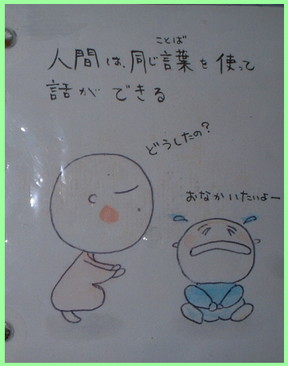 人間は、同じ言葉を使って
ことば
話ができる
どうしたの?
おなかいたいよー